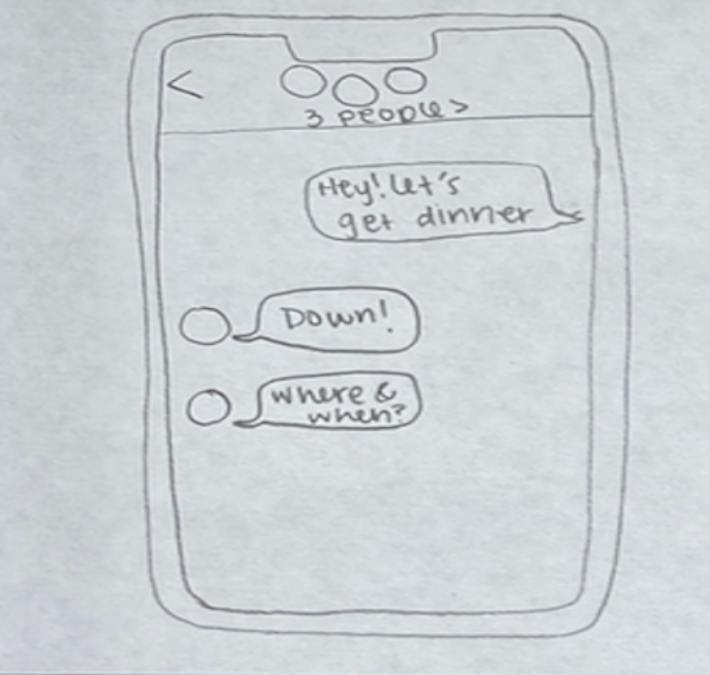 <
3 people >
Hey! Let's
get dinner
Down!
where &
when?